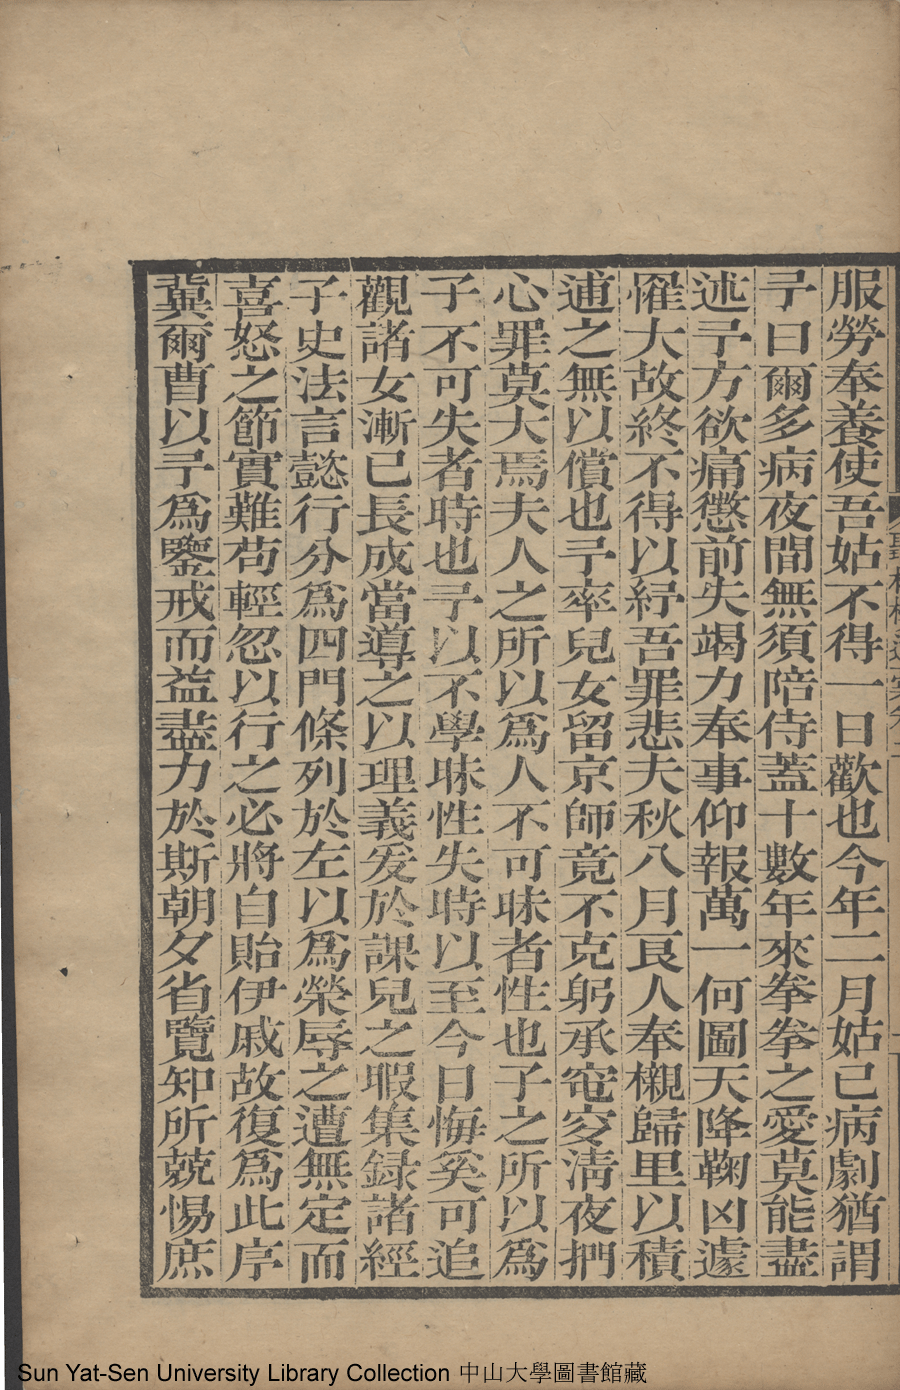 服勞奉養使吾姑不得一日歡也今年二月姑已病劇猶謂
予曰爾多病夜間無須陪侍蓋十數年來拳拳之愛莫能盡
述予方欲痛懲前失竭力奉事仰報萬一何圖天降鞠凶遽
罹大故終不得以紓吾罪悲夫秋八月良人奉櫬歸里以積
逋之無以償也予率兒女留京師竟不克躬承窀穸清夜捫
心罪莫大焉夫人之所以為人不可昧者性也子之所以為
子不可失者時也予以不學昧性失時以至今日悔奚可追
觀諸女漸已長成當導之以理義爰於課兒之暇集録諸經
子史法言懿行分為四門條列於左以為榮辱之遭無定而
喜怒之節實難茍輕忽以行之必將自貽伊戚故復為此序
冀爾曹以予為鑒戒而益盡力於斯朝夕省覽知所兢惕庶
Sun Yat-Sen University Library Collection 中山大學圖書館藏